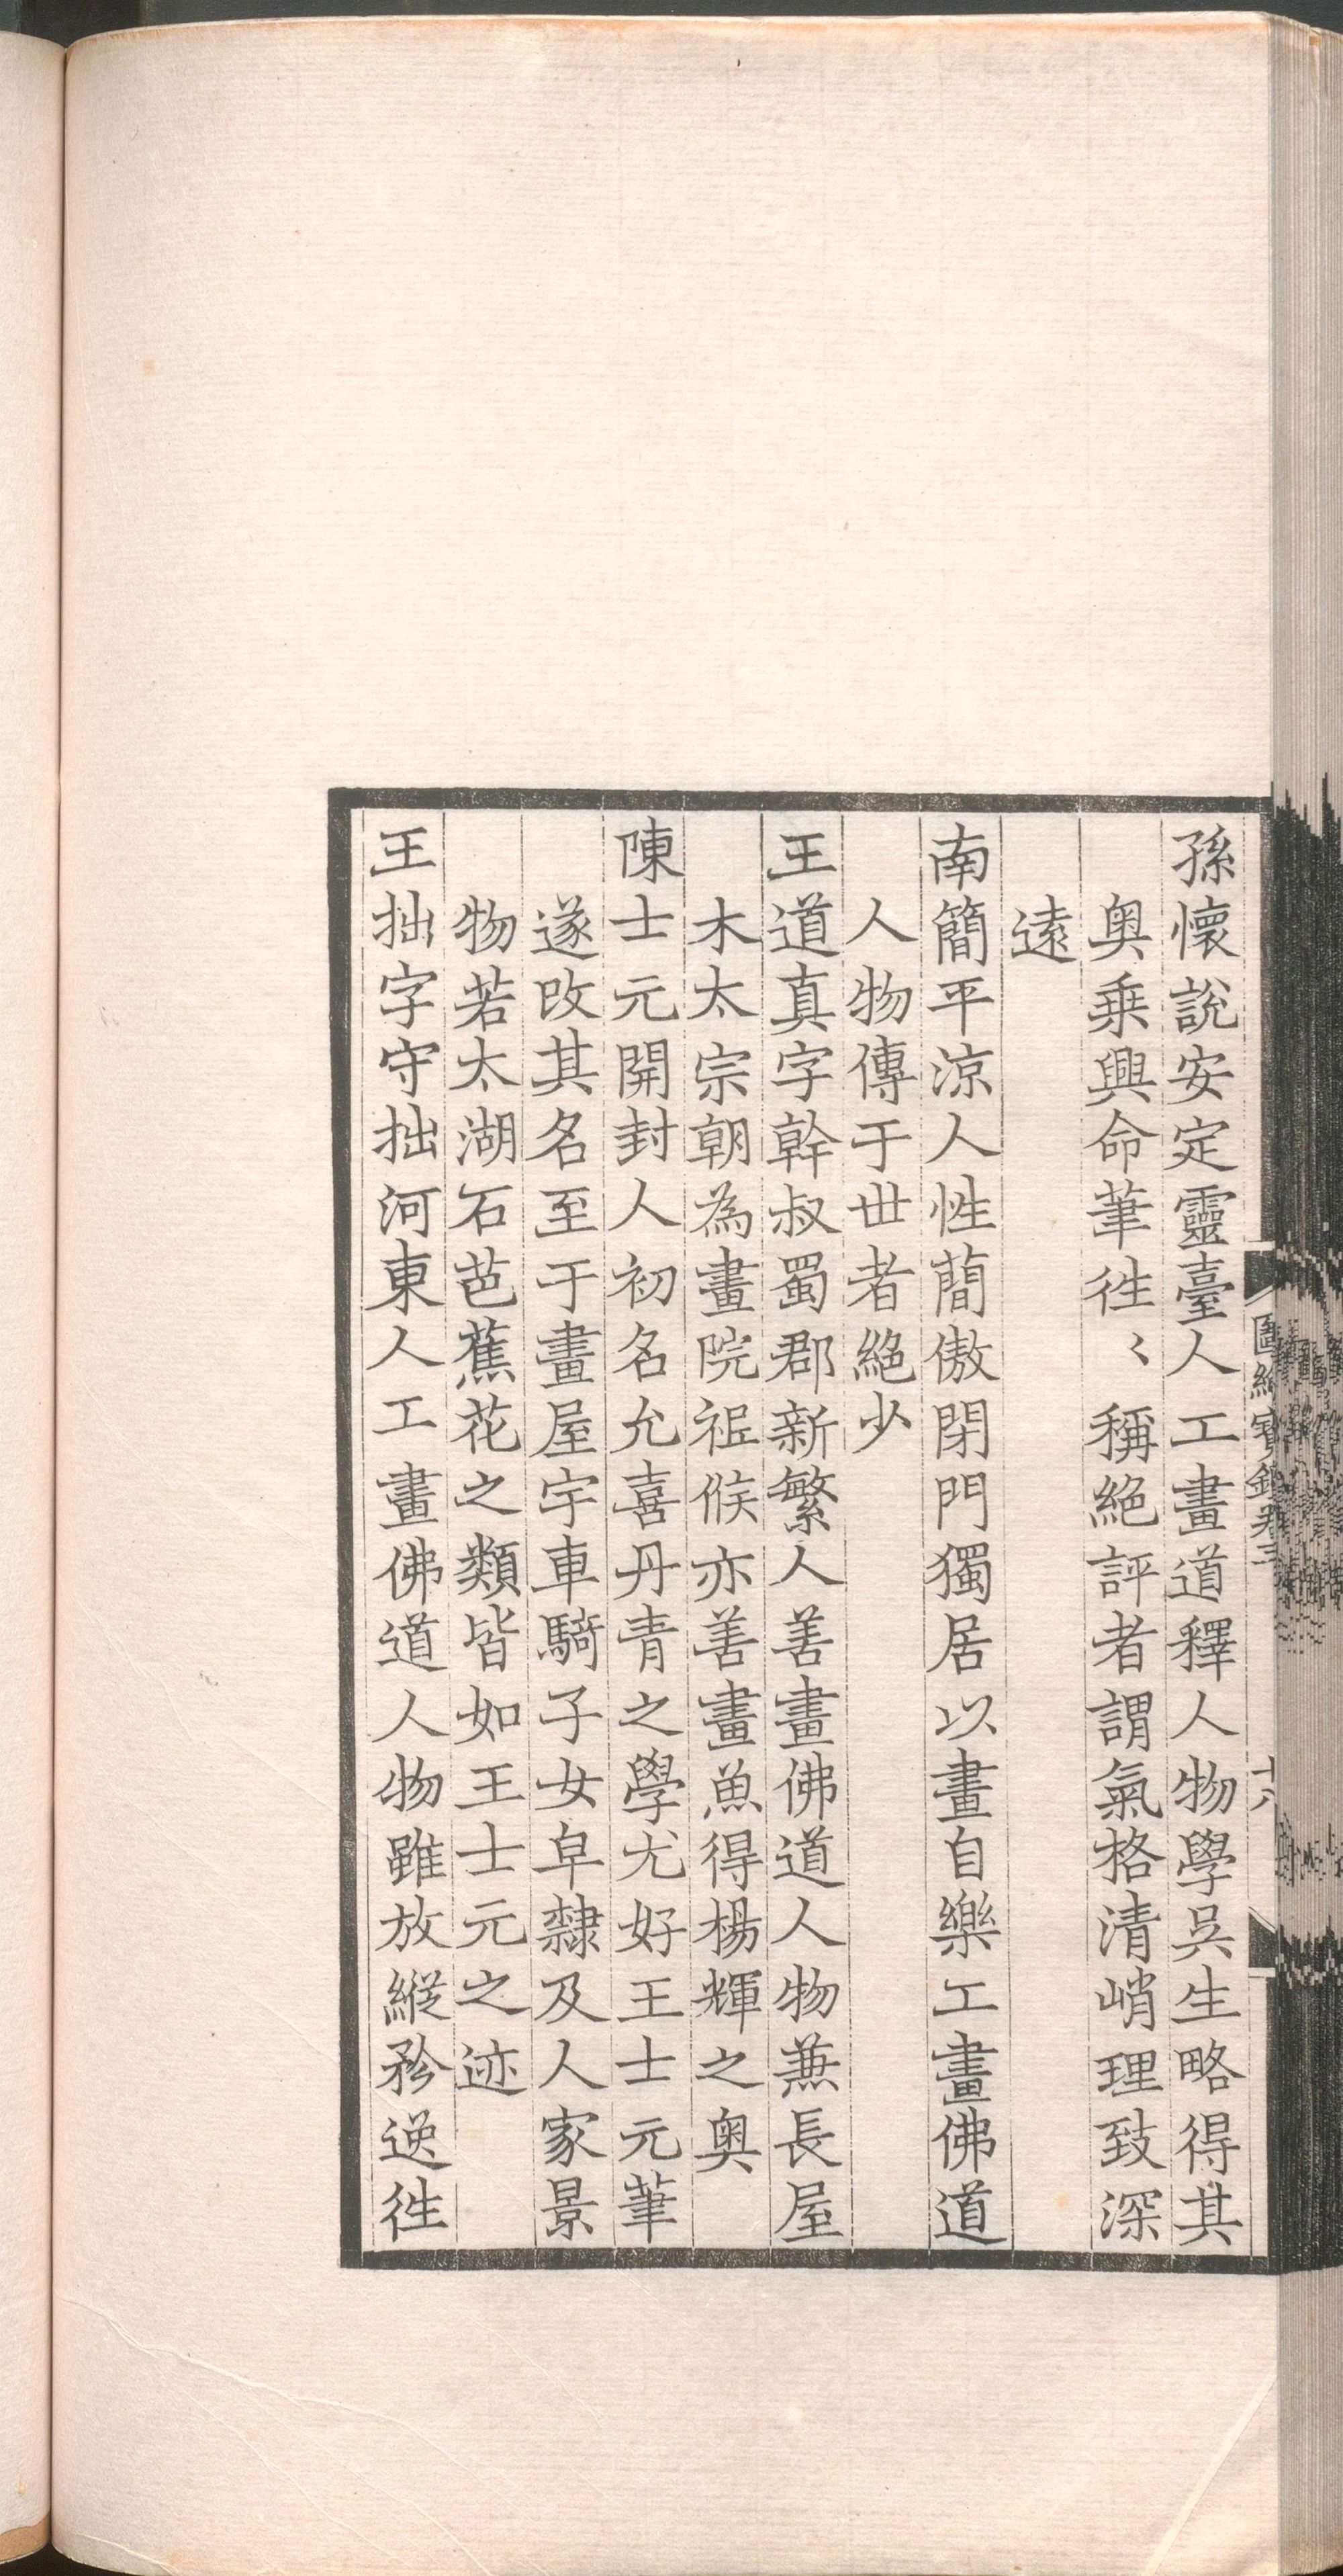 孫懷說安定靈臺人工畫道釋人物學吳生略得其
奧乗興命筆徃〻稱絕評者謂氣格清峭理致深
遠
南簡平涼人性蕑傲閉門獨居以畫自樂工畫佛道
人物傳于世者絕少
王道真字幹叔蜀郡新繁人善畫佛道人物兼長屋
木太宗朝為畫院祗候亦善畫魚得楊輝之奧
陳士元開封人初名允喜丹青之學尤好王士元筆
遂改其名至于畫屋宇車騎子女皁隸及人家景
物若太湖石芭蕉花之類皆如王士元之迹
王拙字守拙河東人工畫佛道人物雖放縱矜逸徃
圖繪寶鑑卷三
十八